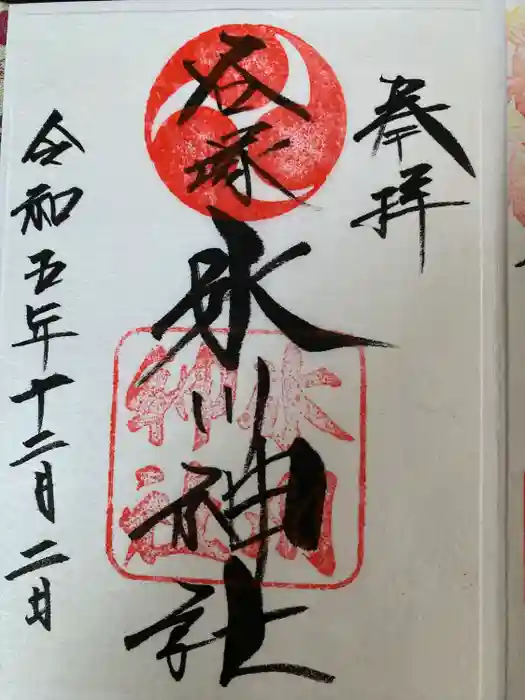 奉拝
谷塚
氷川神社
氷川
神社
令和五年十二月二日